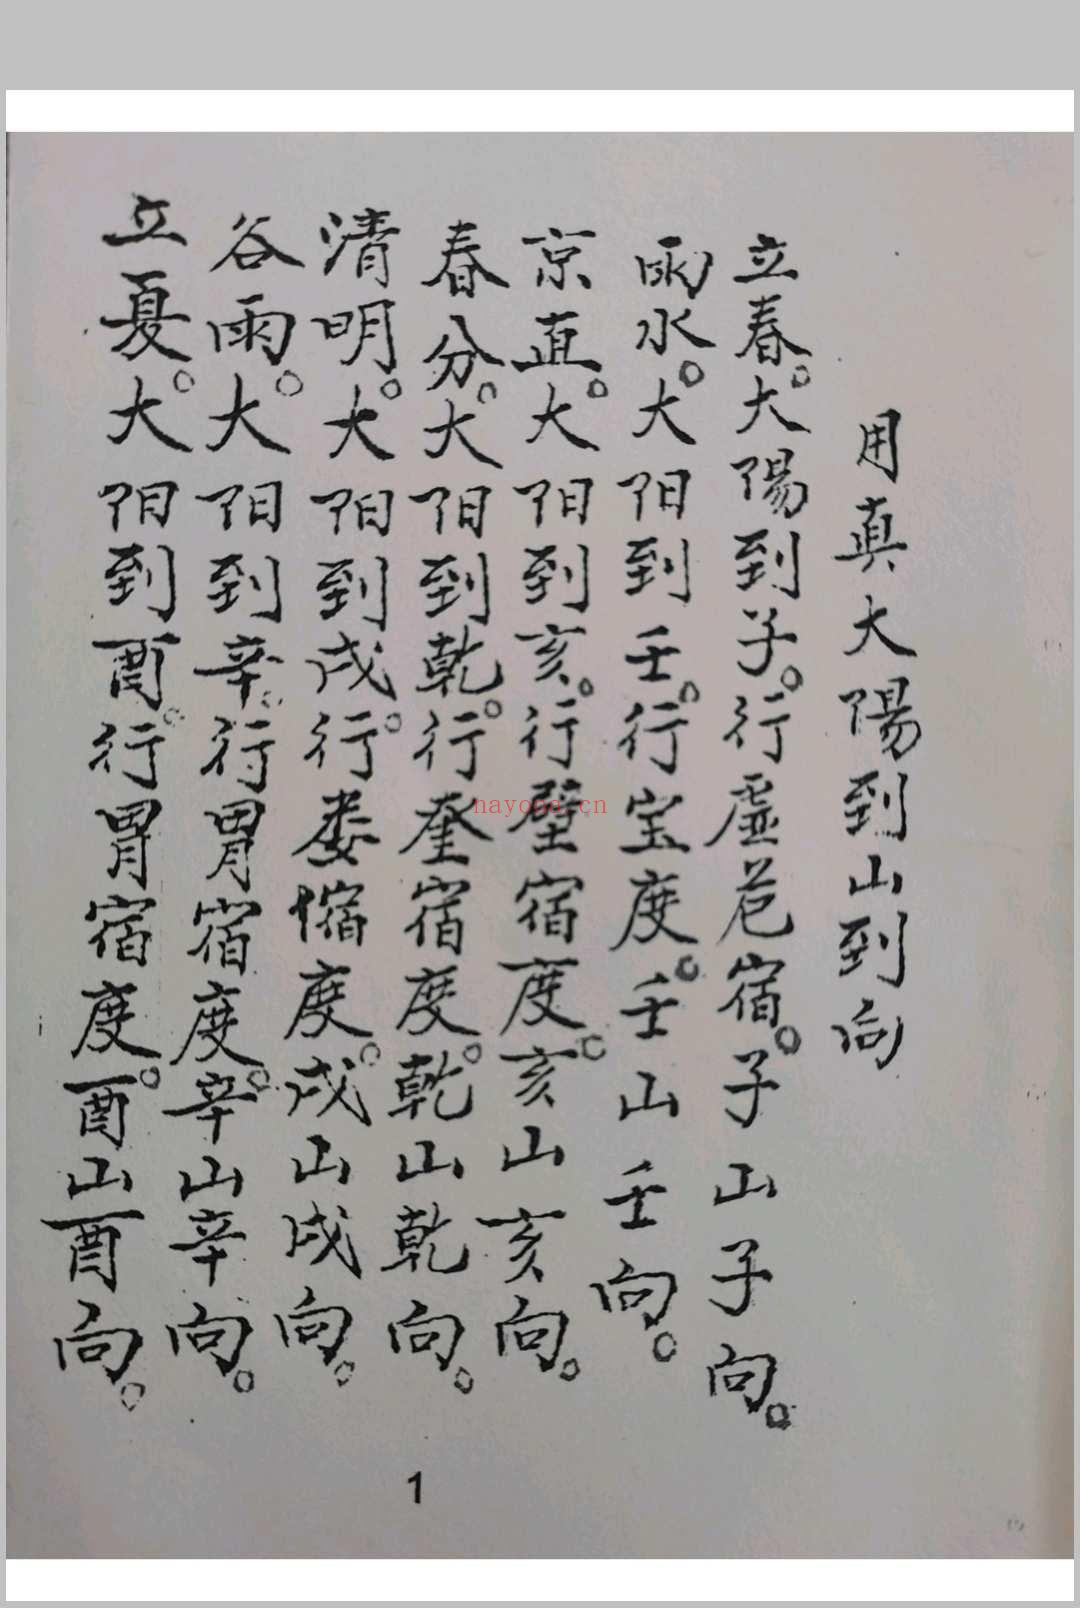 用真大陽到山到向
立春。大陽到子。行虚危宿。子山子向。
雨水。大阳到壬。行宝度。壬山壬向。
京直。大阳到亥。行壁宿度。亥山亥向。
春分。大阳到乾。行奎宿度。乾山乾向。
清明。大阳到戌行。娄宿度。戌山戌向。
谷雨。大阳到辛。行胃宿度。辛山辛向。
立夏。大阳到酉。行胃宿度。酉山酉向。
nayona.cn
1